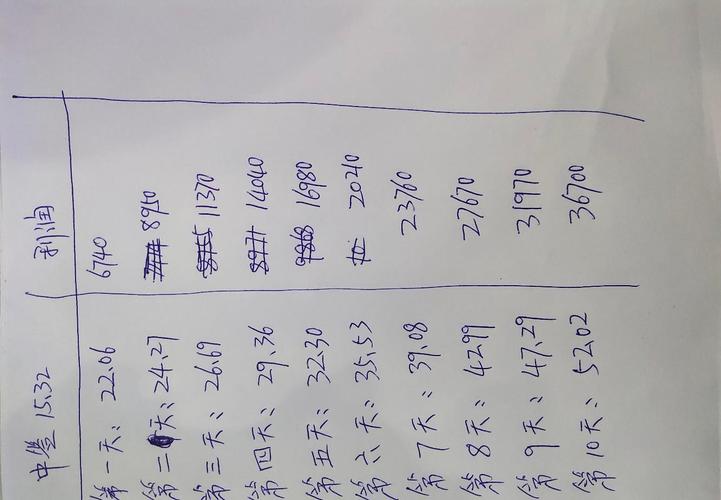 中签 15.32 利润
第一天: 22.06 6740
第二天: 24.27 8950
第三天: 26.69 11370
第四天: 29.36 14040
第五天: 32.30 16980
第六天: 35.53 20210
第7天: 39.08 23760
第8天: 42.99 27670
第9天: 47.29 31970
第10天: 52.02 36700